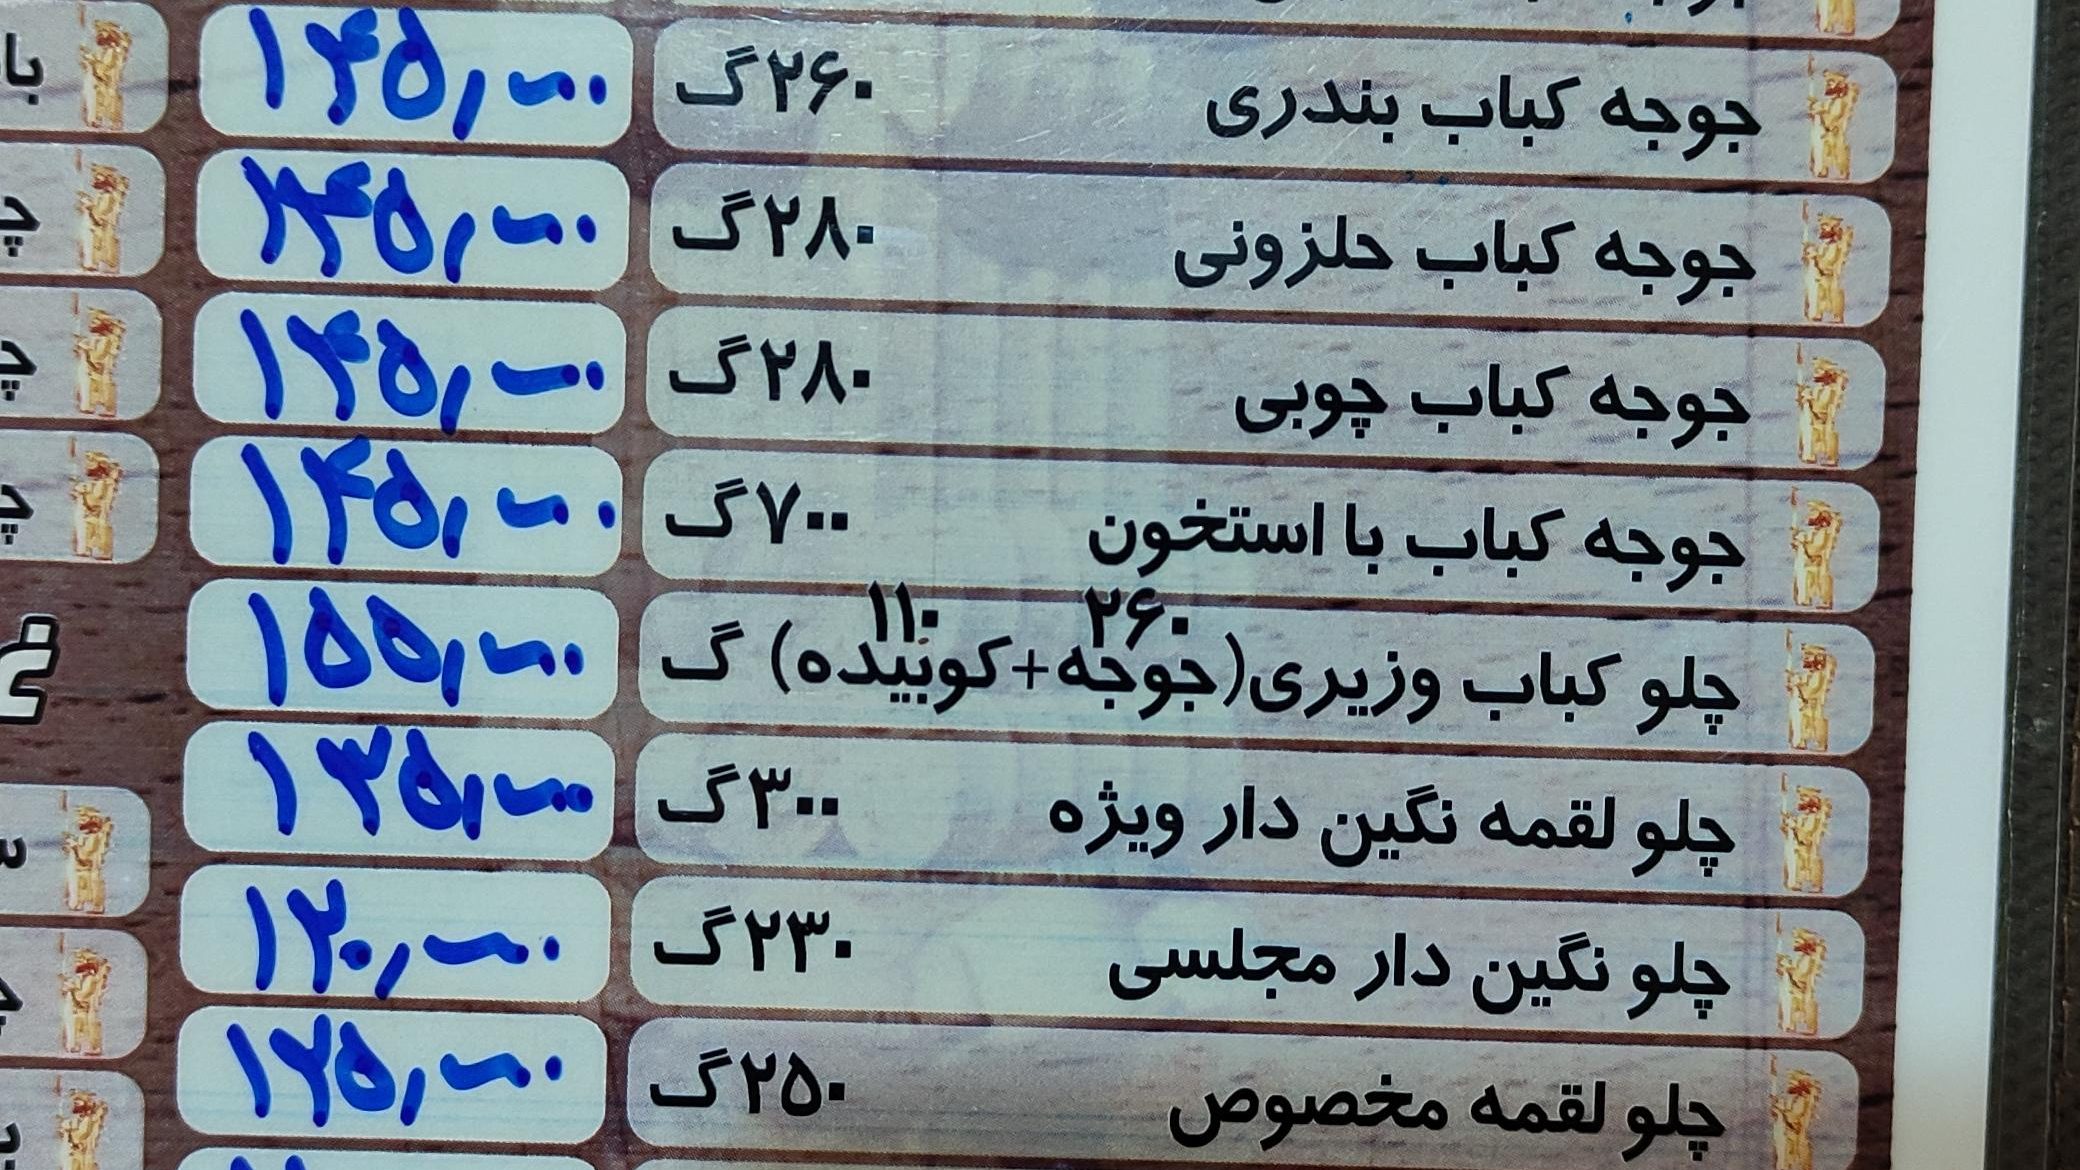 جوجه کباب بندری ۲۶۰گ ۱۴۵٫۰۰۰
جوجه کباب حلزونی ۲۸۰گ ۱۴۵٫۰۰۰
جوجه کباب چوبی ۲۸۰گ ۱۴۵٫۰۰۰
جوجه کباب با استخون ۷۰۰گ ۱۴۵٫۰۰۰
۲۶۰ ۱۱۰
چلو کباب وزیری(جوجه+کوبیده) گ ۱۵۵٫۰۰۰
چلو لقمه نگین دار ویژه ۳۰۰گ ۱۳۵٫۰۰۰
چلو نگین دار مجلسی ۲۳۰گ ۱۲۰٫۰۰۰
چلو لقمه مخصوص ۲۵۰گ ۱۲۵٫۰۰۰